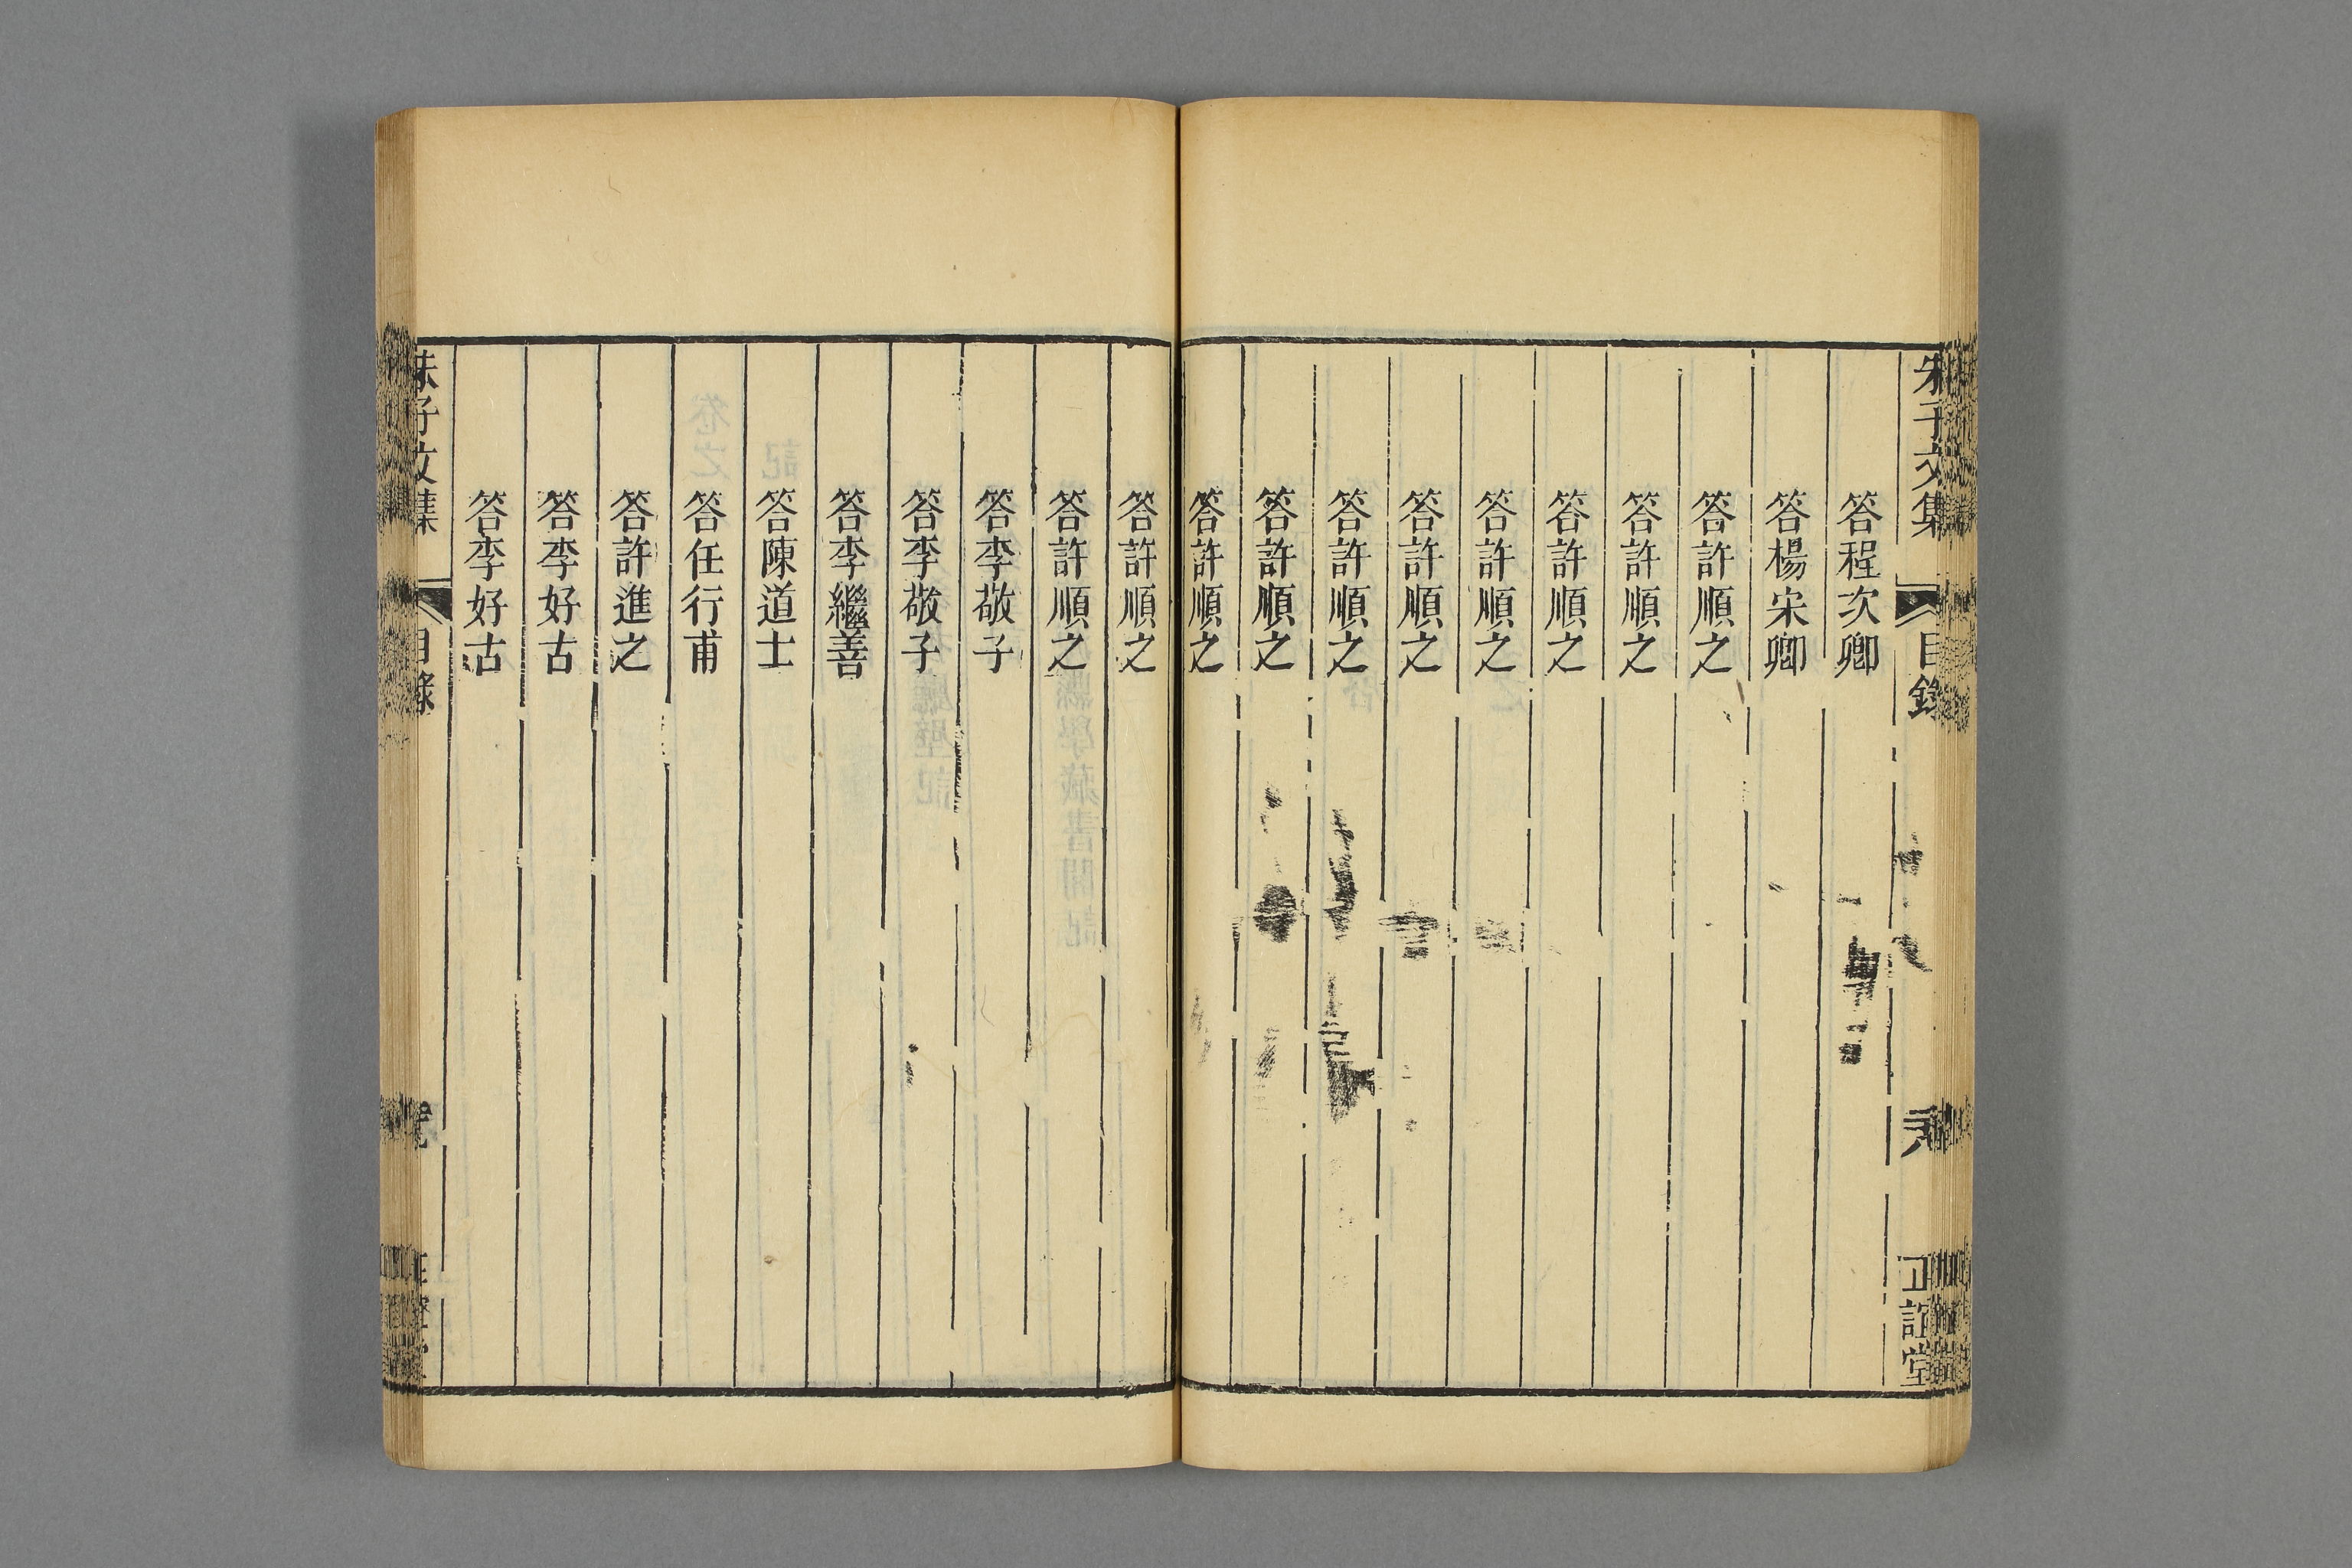 朱子文集 目錄 正誼堂
答程次卿
答楊宋卿
答許順之
答許順之
答許順之
答許順之
答許順之
答許順之
答許順之
答許順之
答許順之
答許順之
答李敬子
答李敬子
答李繼善
答陳道士
答任行甫
答許進之
答李好古
答李好古
朱子文集 目錄